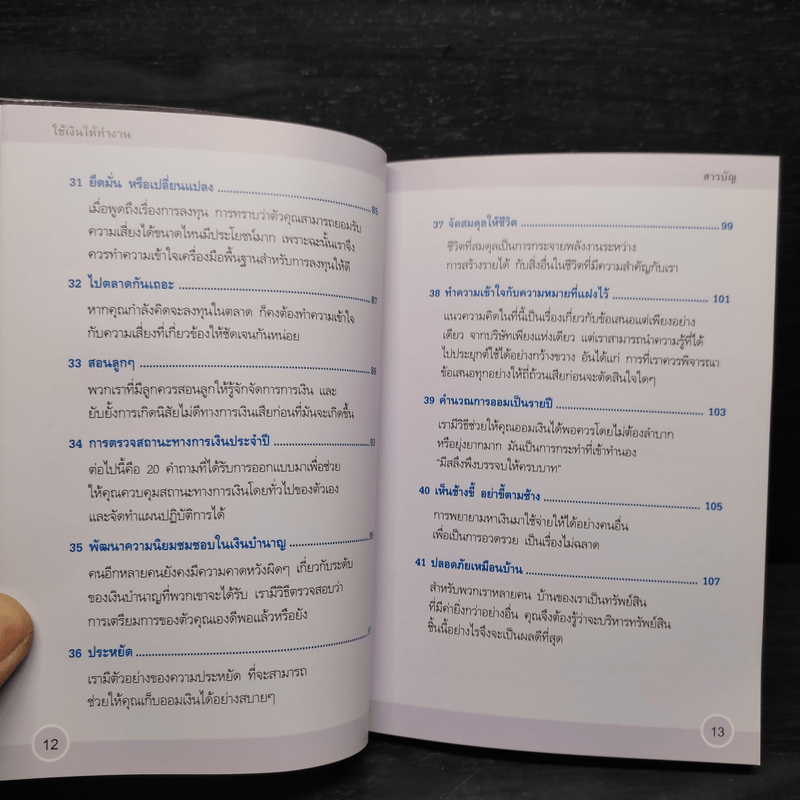 ใช้เงินให้ทำงาน
31 ยึดมั่น หรือเปลี่ยนแปลง ........ 85
เมื่อพูดถึงเรื่องการลงทุน การทราบว่าตัวคุณสามารถยอมรับ
ความเสี่ยงได้ขนาดไหนมีประโยชน์มาก เพราะฉะนั้นเราจึง
ควรทำความเข้าใจเครื่องมือพื้นฐานสำหรับการลงทุนให้ดี
32 ไปตลาดกันเถอะ ........ 87
หากคุณกำลังคิดจะลงทุนในตลาด ก็คงต้องทำความเข้าใจ
กับความเสี่ยงที่เกี่ยวข้องให้ชัดเจนกันหน่อย
33 สอนลูกๆ ........ 89
พวกเราที่มีลูกควรสอนลูกให้รู้จักจัดการการเงิน และ
ยับยั้งการเกิดนิสัยไม่ดีทางการเงินเสียก่อนที่มันจะเกิดขึ้น
34 การตรวจสถานะทางการเงินประจำปี ........ 91
ต่อไปนี้คือ 20 คำถามที่ได้รับการออกแบบมาเพื่อช่วย
ให้คุณควบคุมสถานะทางการเงินโดยทั่วไปของตัวเอง
และจัดทำแผนปฏิบัติการได้
35 พัฒนาความนิยมชมชอบในเงินบำนาญ ........
คนอีกหลายคนยังคงมีความคาดหวังผิดๆ เกี่ยวกับระดับ
ของเงินบำนาญที่พวกเขาจะได้รับ เรามีวิธีตรวจสอบว่า
การเตรียมการของตัวคุณเองดีพอแล้วหรือยัง
36 ประหยัด ........
เรามีตัวอย่างของความประหยัด ที่จะสามารถ
ช่วยให้คุณเก็บออมเงินได้อย่างสบายๆ
12
สารบัญ
37 จัดสมดุลให้ชีวิต ........ 99
ชีวิตที่สมดุลเป็นการกระจายพลังงานระหว่าง
การสร้างรายได้ กับสิ่งอื่นในชีวิตที่มีความสำคัญกับเรา
38 ทำความเข้าใจกับความหมายที่แฝงไว้ ........ 101
แนวความคิดในที่นี้เป็นเรื่องเกี่ยวกับข้อเสนอแต่เพียงอย่าง
เดียว จากบริษัทเพียงแห่งเดียว แต่เราสามารถนำความรู้ที่ได้
ไปประยุกต์ใช้ได้อย่างกว้างขวาง อันได้แก่ การที่เราควรพิจารณา
ข้อเสนอทุกอย่างให้ถี่ถ้วนเสียก่อนจะตัดสินใจใดๆ
39 คำนวณการออมเป็นรายปี ........ 103
เรามีวิธีช่วยให้คุณออมเงินได้พอควรโดยไม่ต้องลำบาก
หรือยุ่งยากมาก มันเป็นการกระทำที่เข้าทำนอง
"มีสลึงพึงบรรจบให้ครบบาท"
40 เห็นช้างขี้ อย่าขี้ตามช้าง ........ 105
การพยายามหาเงินมาใช้จ่ายให้ได้อย่างคนอื่น
เพื่อเป็นการอวดรวย เป็นเรื่องไม่ฉลาด
41 ปลอดภัยเหมือนบ้าน ........ 107
สำหรับพวกเราหลายคน บ้านของเราเป็นทรัพย์สิน
ที่มีค่ายิ่งกว่าอย่างอื่น คุณจึงต้องรู้ว่าจะบริหารทรัพย์สิน
ชิ้นนี้อย่างไรจึงจะเป็นผลดีที่สุด
13